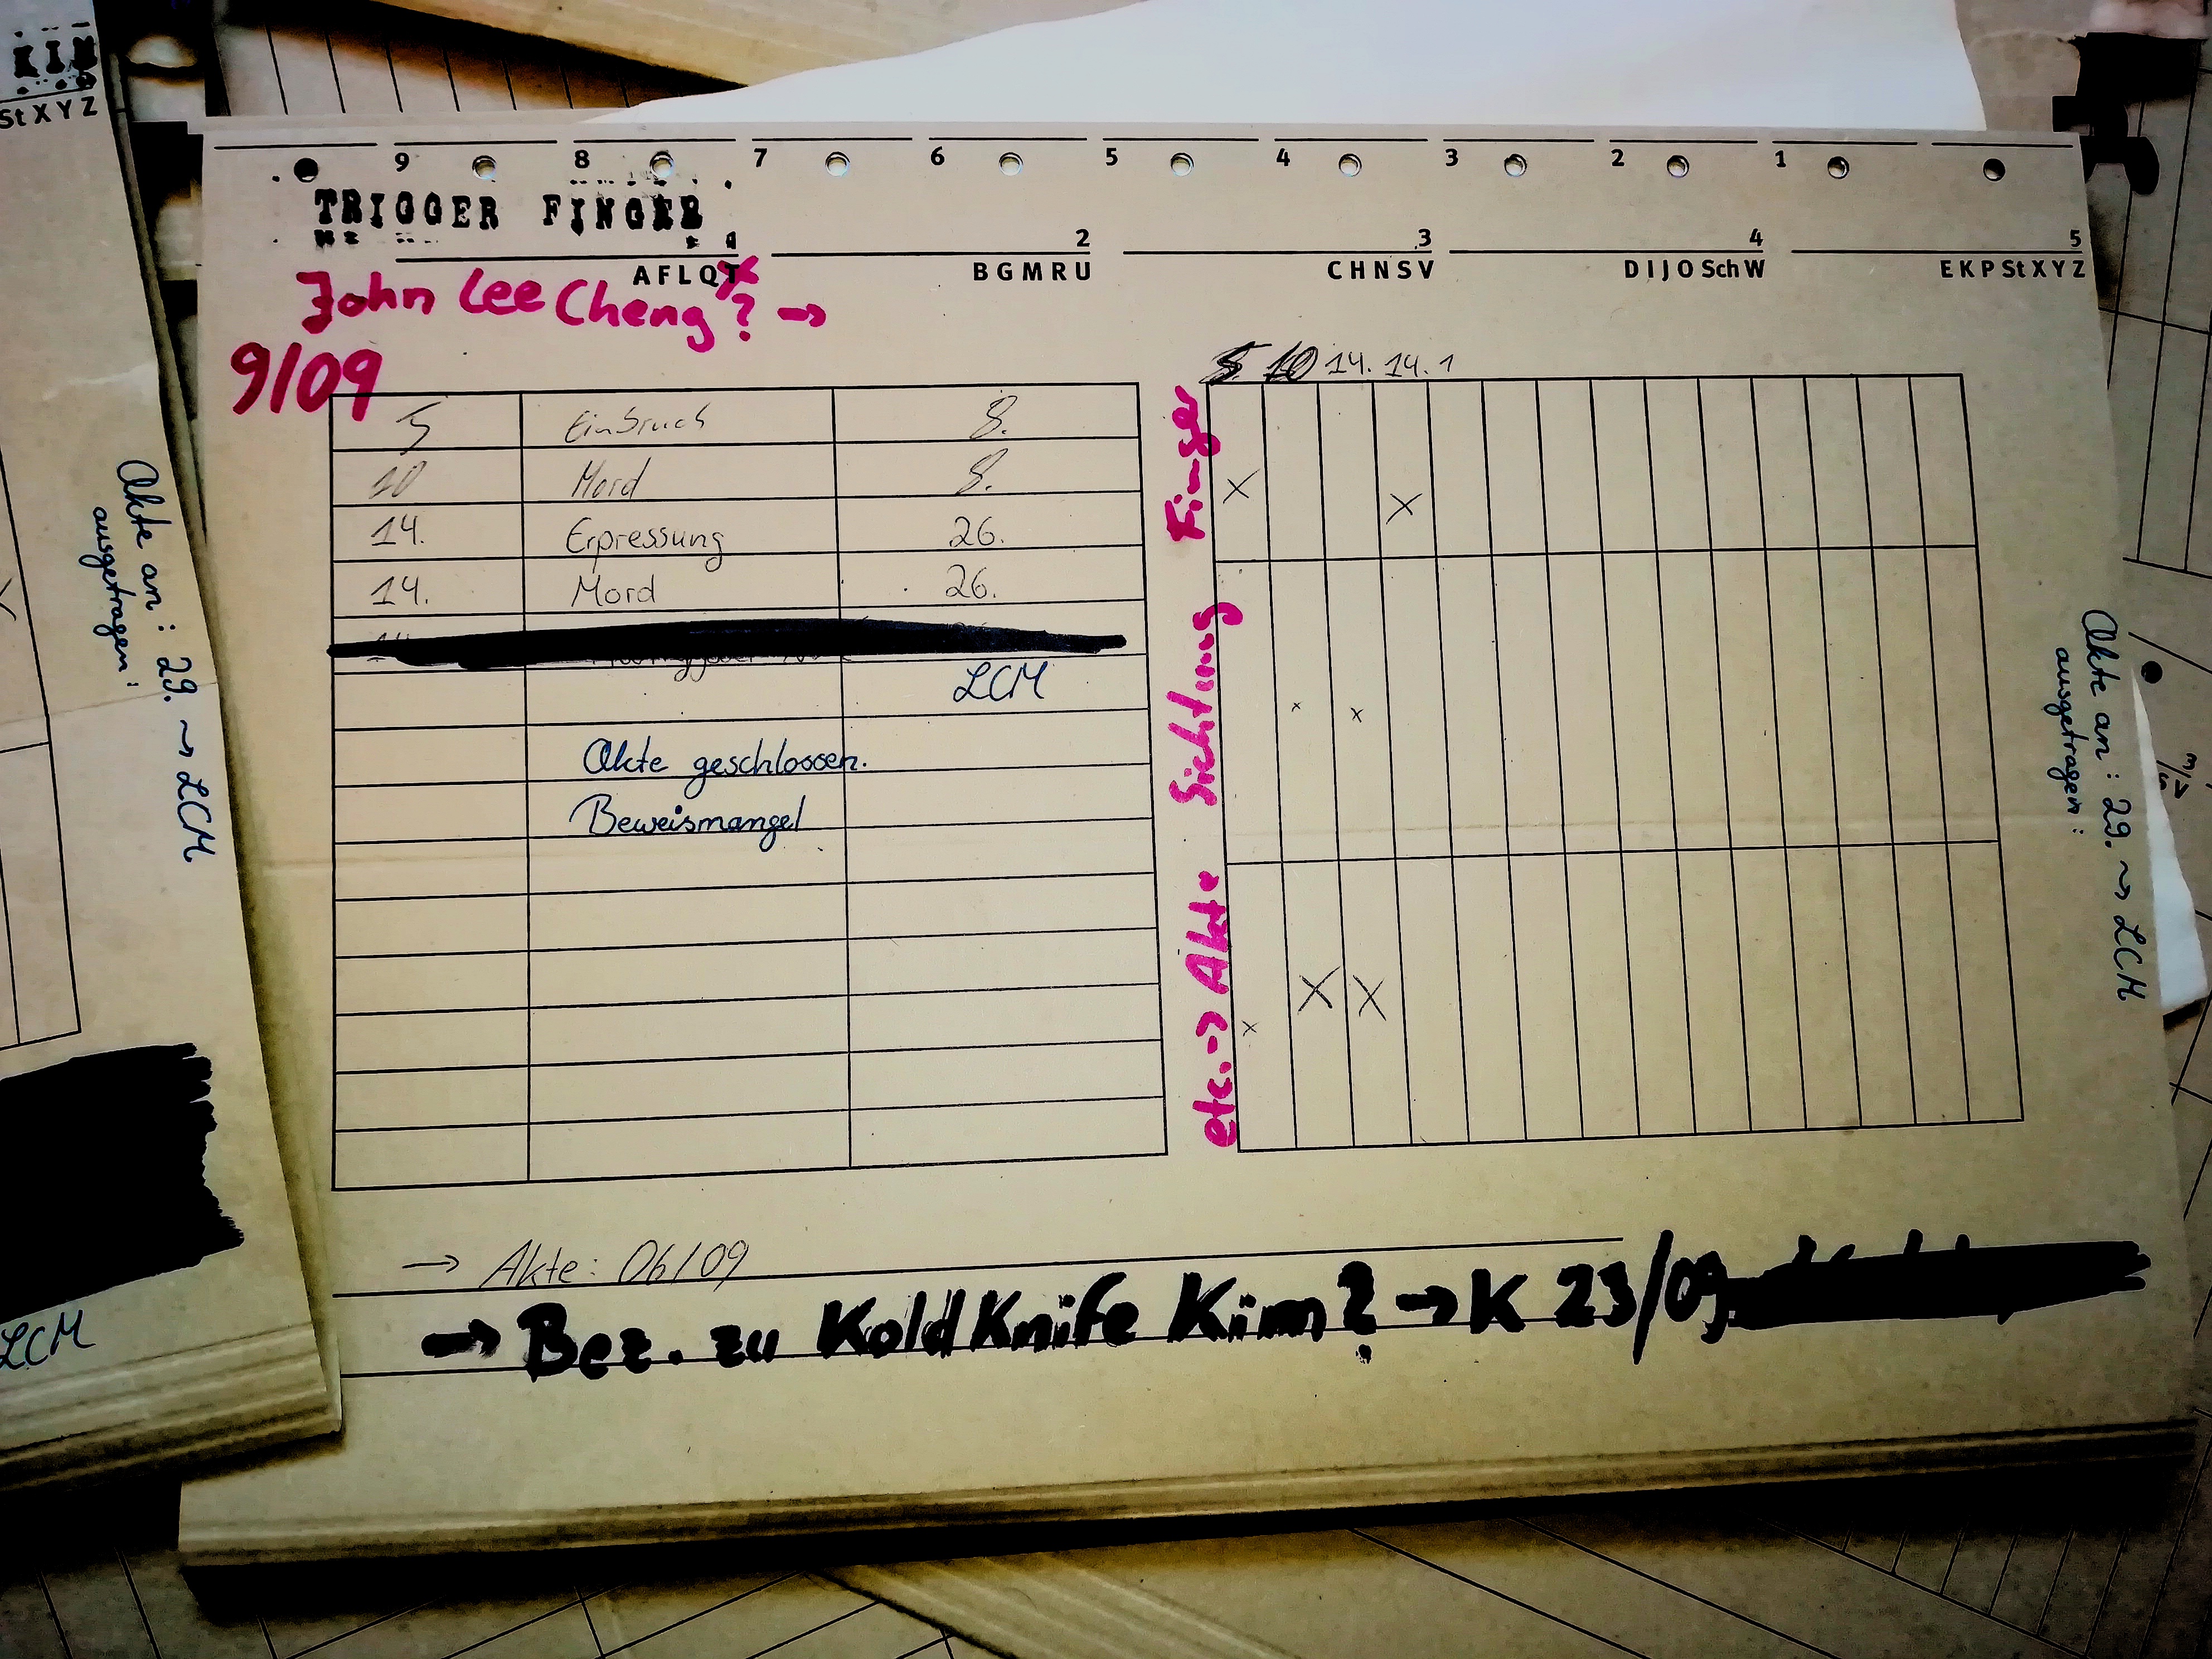 KIM
St X Y Z
9 8 7 6 5 4 3 2 1
TRIGGER FINGER
2 3 4 5
A F L Q T B G M R U C H N S V D I J O Sch W E K P St X Y Z
John Lee Cheng? →
9/09
5 10 14. 14. 1
5 Einbruch 8.
10 Mord 8.
14. Erpressung 26.
14. Mord 26.
LCM
Akte geschlossen.
Beweismangel
Finger
Sichtung
etc. → Akte
→ Akte: 06/09
→ Bez. zu Kold Knife Kim? → K 23/09
Akte an: 29. ~> LCM
ausgetragen:
Akte an: 29. ~> LCM
ausgetragen:
LCM